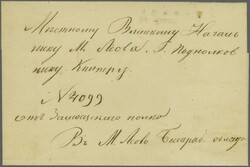 Мѣстному Воинскому Началь
нику М. Леова. Г. Подполков
нику. Книперу.
№ 4099
отъ Замосцскаго полка
Въ М. Леово Бессараб. области